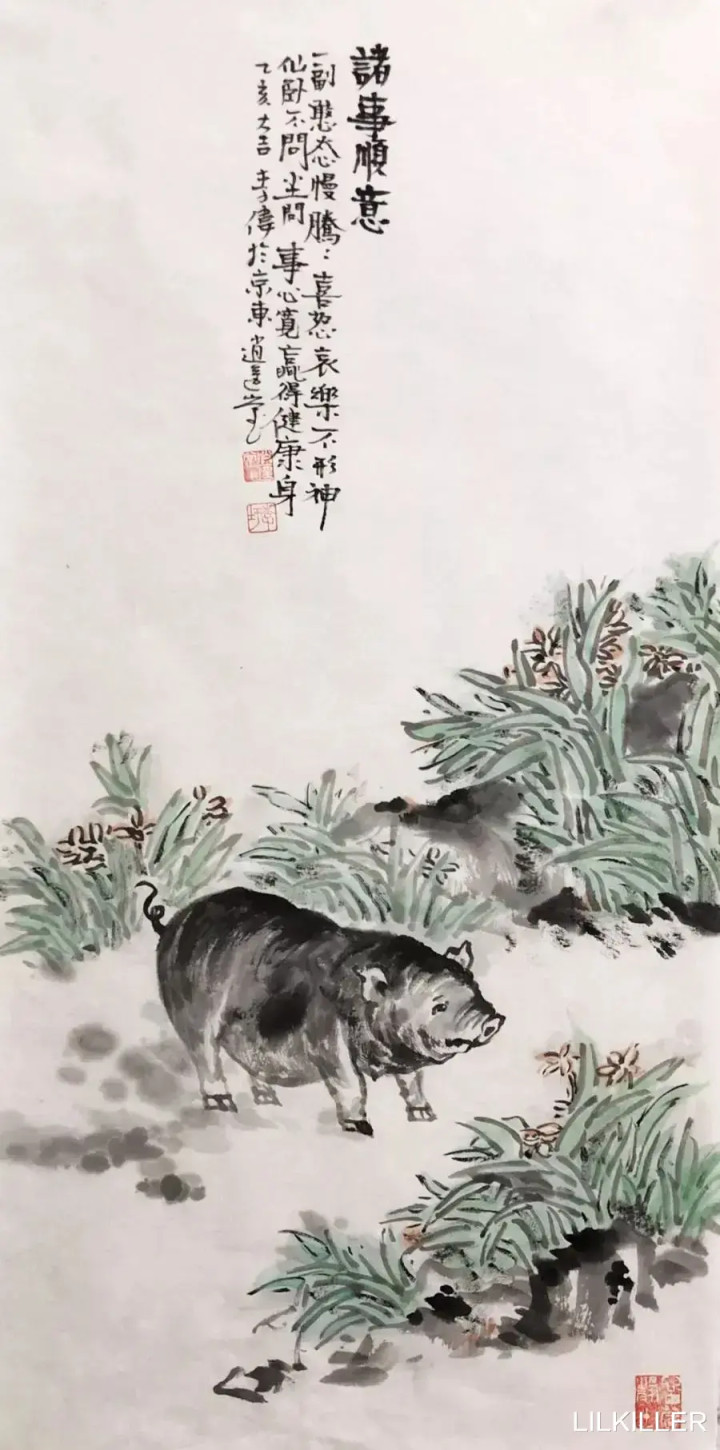 諸事順意
一副憨态慢騰：喜怒哀樂不形神
仙卧不問尘間事心寬贏得健康身
亥大吉李偉於京東逍遥堂
LILKILLER